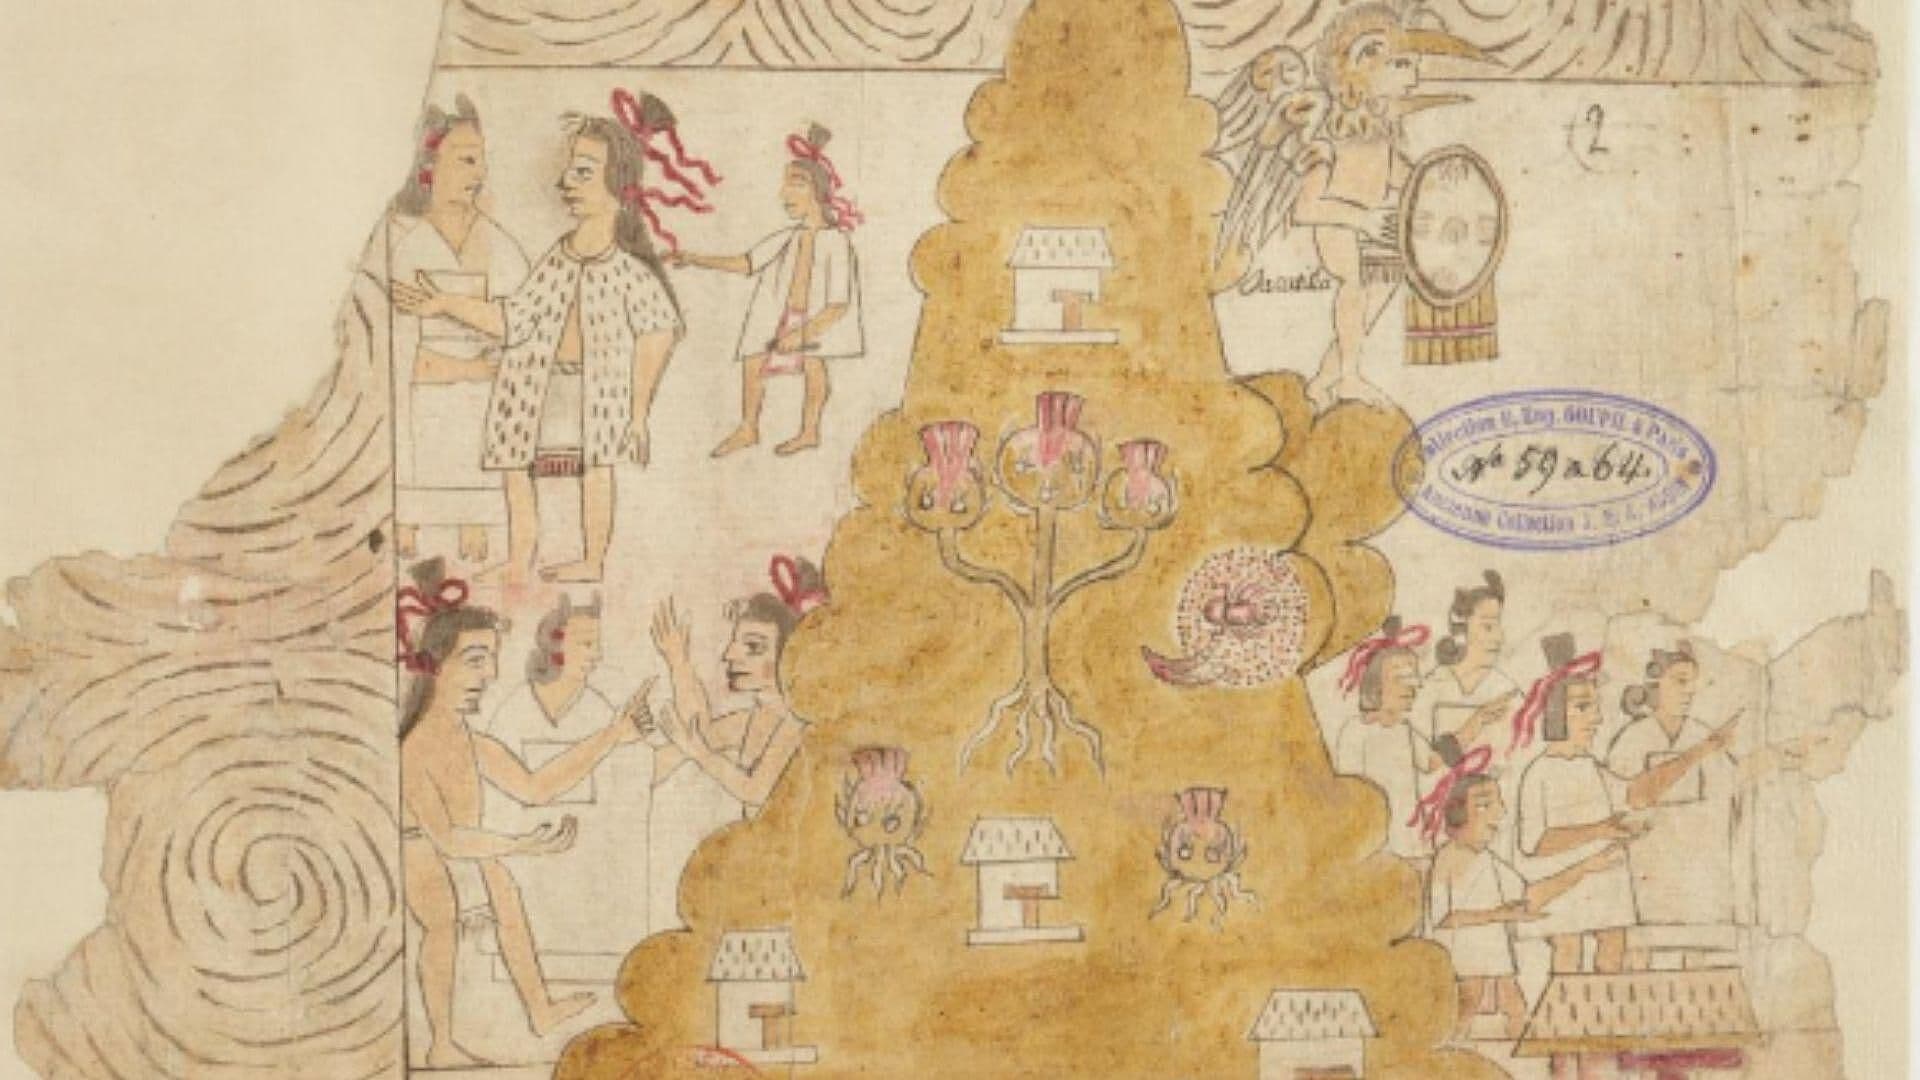 2
Collection E. Eug. GOUPIL à Paris
No 59 a 64.
Ancienne Collection J. M. A. AUBIN